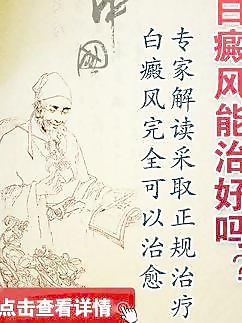 白癜风能治好吗?
专家解读采取正规治疗
白癜风完全可以治愈
中国
点击查看详情